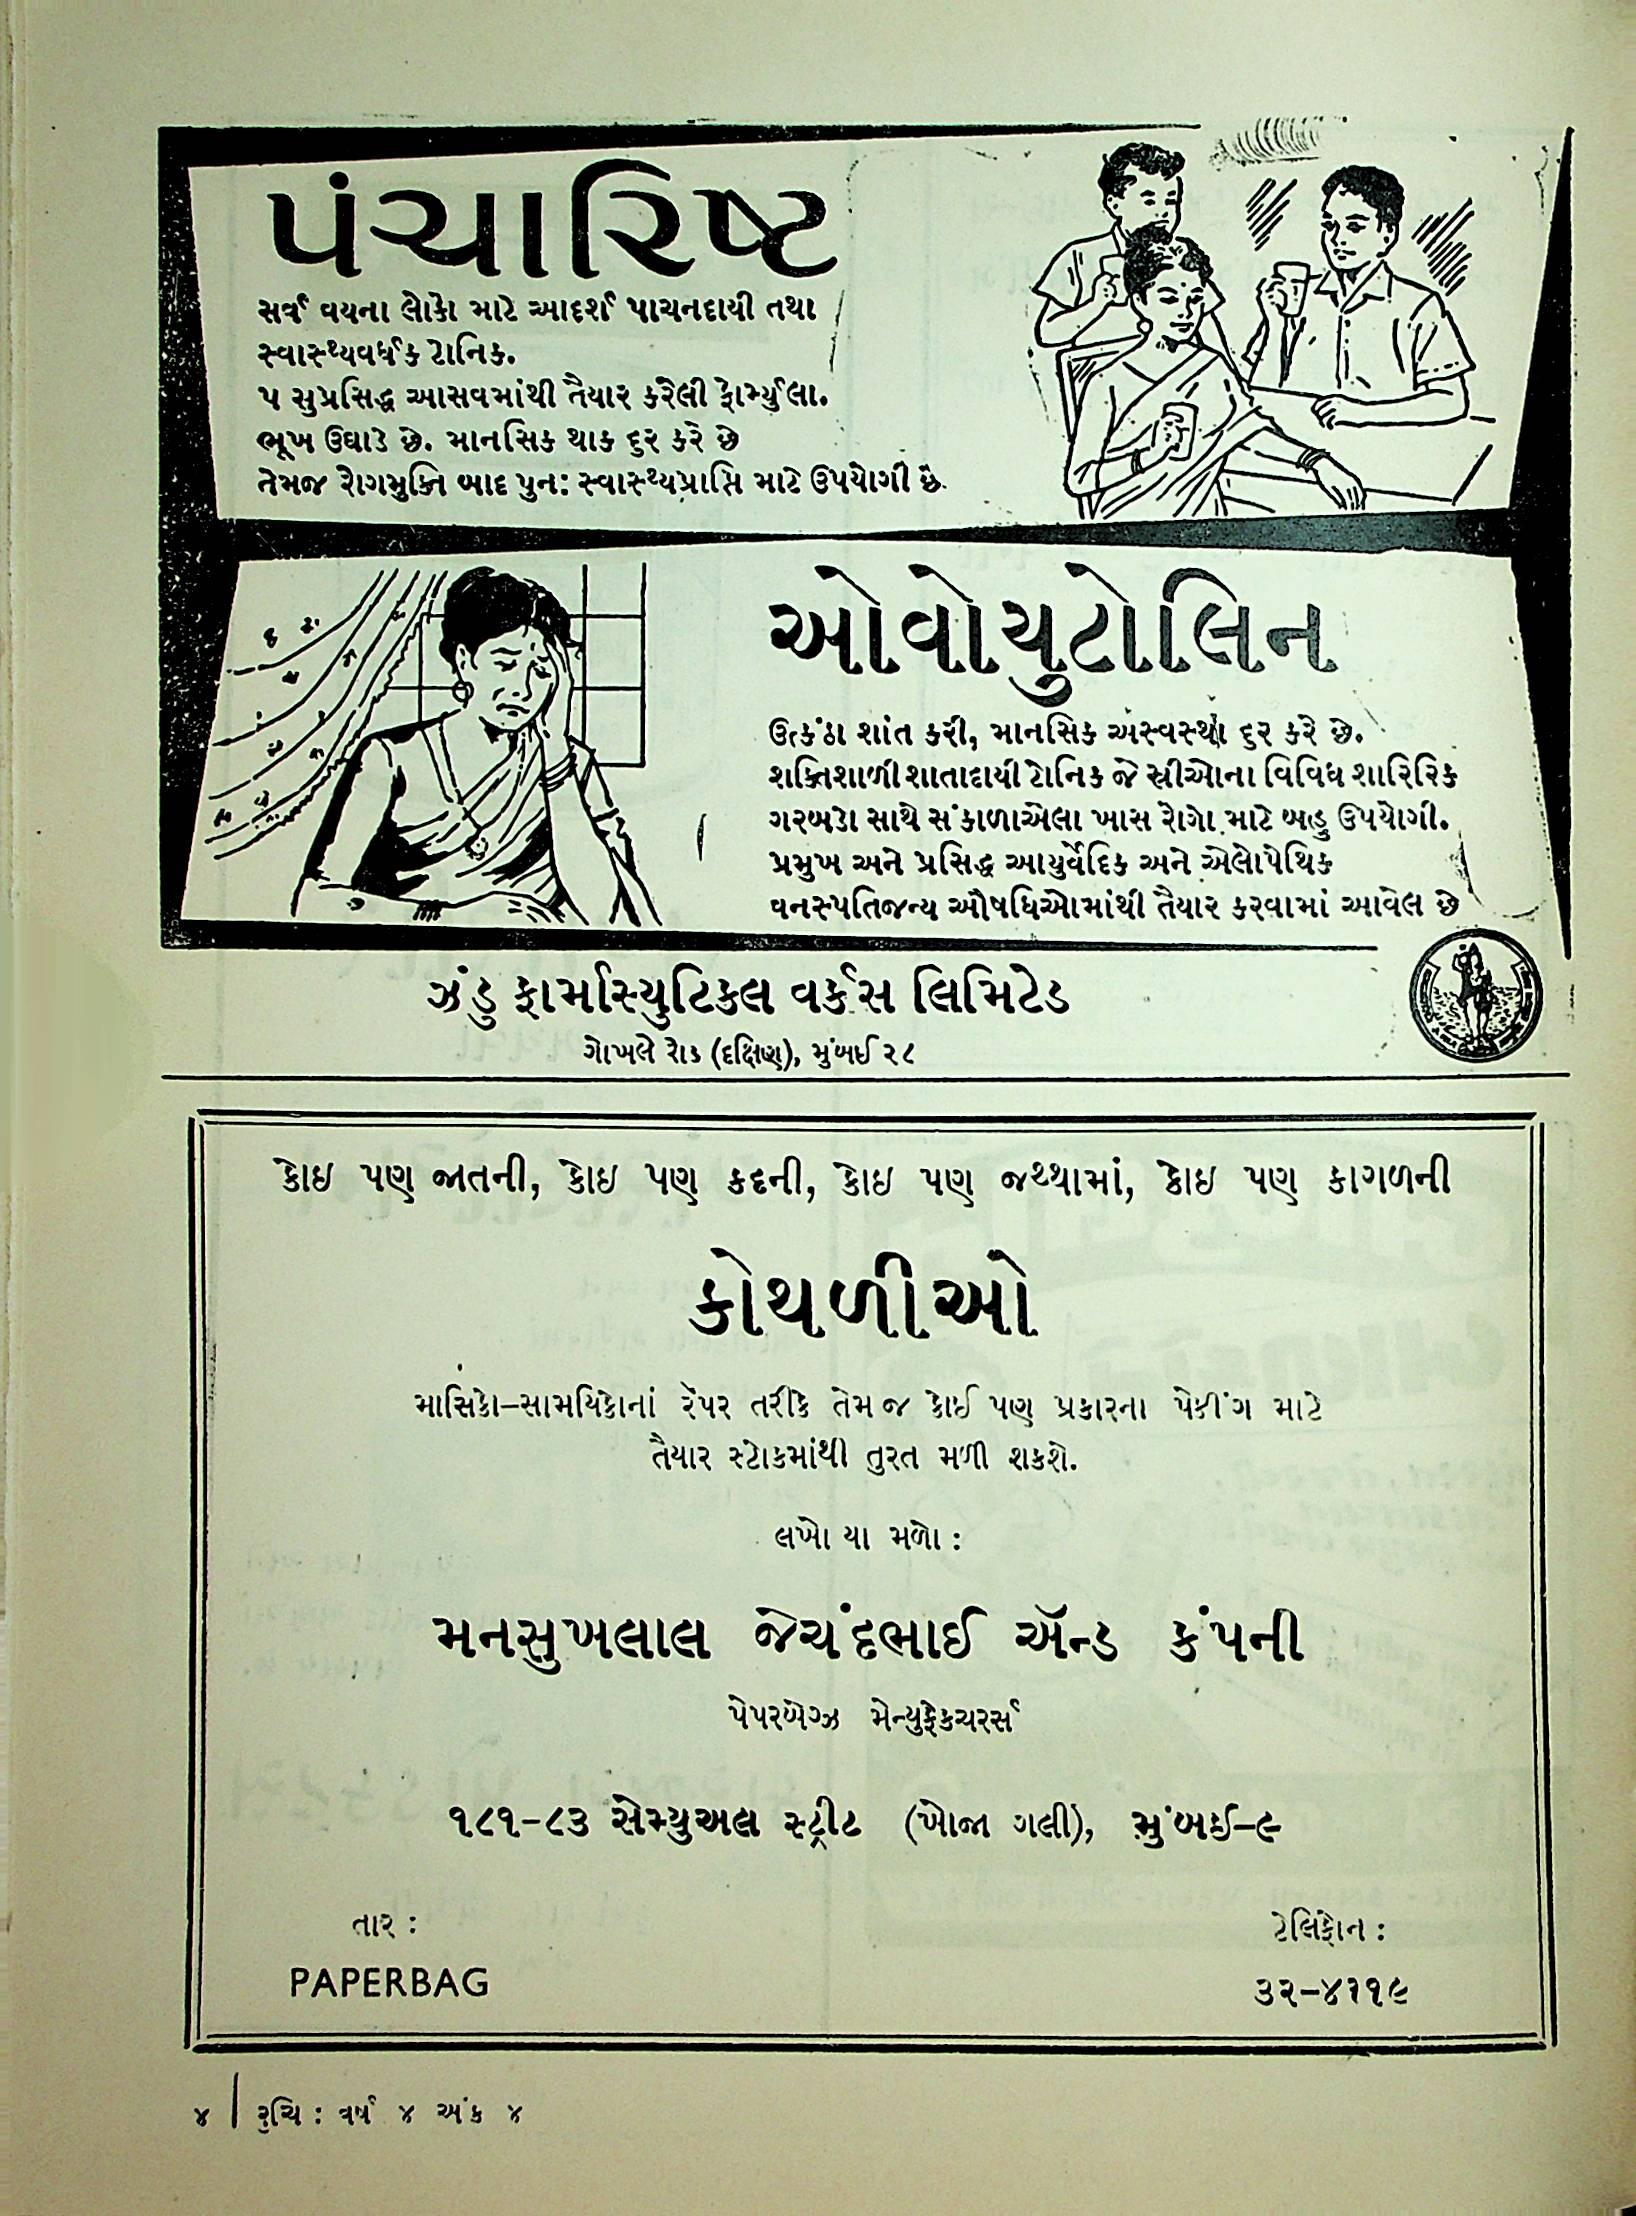 પંચારિષ્ટ
સર્વ વયના લોકો માટે આદર્શ પાચનદાયી તથા
સ્વાસ્થ્યવર્ધક ટોનિક.
૫ સુપ્રસિદ્ધ આસવમાંથી તૈયાર કરેલી ફોર્મ્યુલા.
ભૂખ ઉઘાડે છે. માનસિક થાક દુર કરે છે
તેમજ રોગમુક્તિ બાદ પુન: સ્વાસ્થ્યપ્રાપ્તિ માટે ઉપયોગી છે.
ઓવોયુટોલિન
ઉત્કંઠા શાંત કરી, માનસિક અસ્વસ્થા દુર કરે છે.
શક્તિશાળી શાતાદાયી ટોનિક જે સ્ત્રીઓના વિવિધ શારિરિક
ગરબડો સાથે સંકાળાએલા ખાસ રોગો માટે બહુ ઉપયોગી.
પ્રમુખ અને પ્રસિદ્ધ આયુર્વેદિક અને એલોપેથિક
વનસ્પતિજન્ય ઔષધિઓમાંથી તૈયાર કરવામાં આવેલ છે
ઝંડુ ફાર્માસ્યુટિકલ વર્કસ લિમિટેડ
ગોખલે રોડ (દક્ષિણ), મુંબઈ ૨૮
કોઇ પણ જાતની, કોઇ પણ કદની, કોઇ પણ જથ્થામાં, કોઇ પણ કાગળની
કોથળીઓ
માસિકો–સામયિકોનાં રેંપર તરીકે તેમ જ કોઈ પણ પ્રકારના પેકીંગ માટે
તૈયાર સ્ટોકમાંથી તુરત મળી શકશે.
લખો યા મળો :
મનસુખલાલ જેચંદભાઈ ઍન્ડ કંપની
પેપરબેગ્ઝ મેન્યુફેકચરર્સ
૧૮૧–૮૩ સેમ્યુઅલ સ્ટ્રીટ (ખોજા ગલી), મુંબઈ–૯
તાર :
PAPERBAG
ટેલિફોન :
૩૨–૪૧૧૯
૪ | રુચિ : વર્ષ ૪ અંક ૪